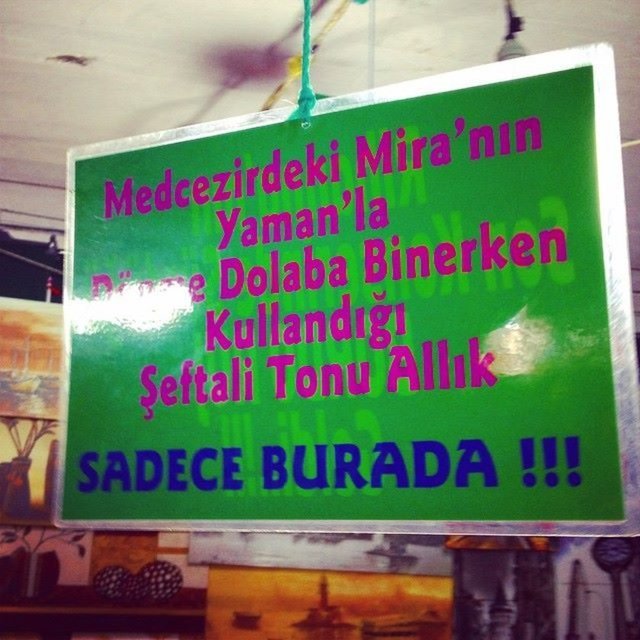 Medcezirdeki Mira'nın
Yaman'la
Dönme Dolaba Binerken
Kullandığı
Şeftali Tonu Allık
SADECE BURADA !!!